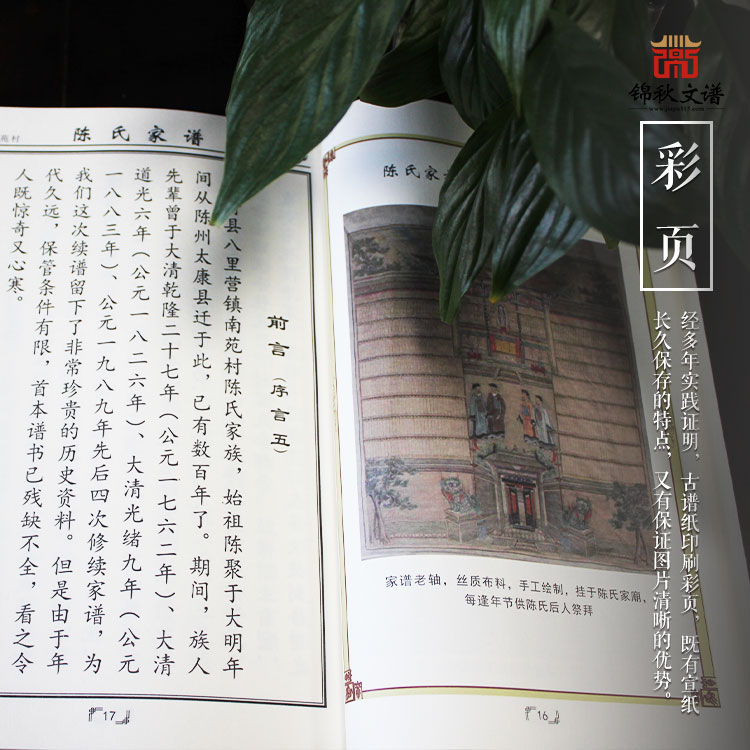 锦秋文谱
彩页
经多年实践证明，古谱纸印刷彩页，既有宣纸
长久保存的特点，又有保证图片清晰的优势。
陈氏家
家谱老轴，丝质布料，手工绘制，挂于陈氏家庙，
每逢年节供陈氏后人祭拜
16
陈氏家谱
苑村
前言（序言五）
县八里营镇南苑村陈氏家族，始祖陈聚于大明年
间从陈州太康县迁于此，已有数百年了。期间，族人
先辈曾于大清乾隆二十七年（公元一七六二年）、大清
道光六年（公元一八二六年）、大清光绪九年（公元
一八八三年）、公元一九八九年先后四次修续家谱，为
我们这次续谱留下了非常珍贵的历史资料。但是由于年
代久远，保管条件有限，首本谱书已残缺不全，看之令
人既惊奇又心寒。
17